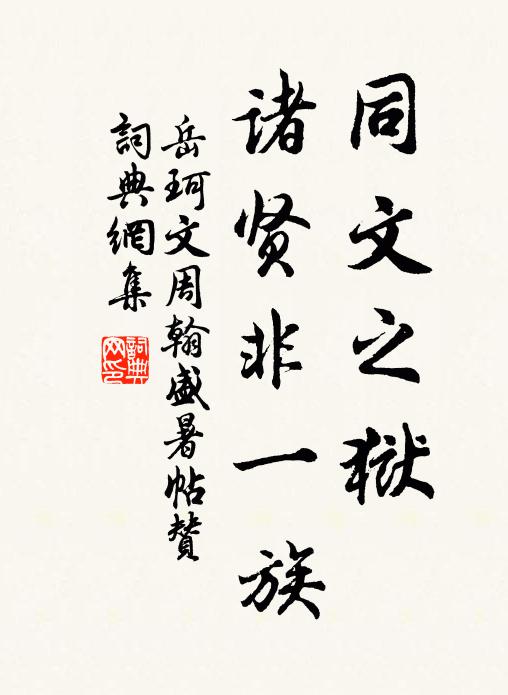 同文之狱
诸贤非一族
岳珂文周翰盛暑帖赞
詞典網集
詞典网印